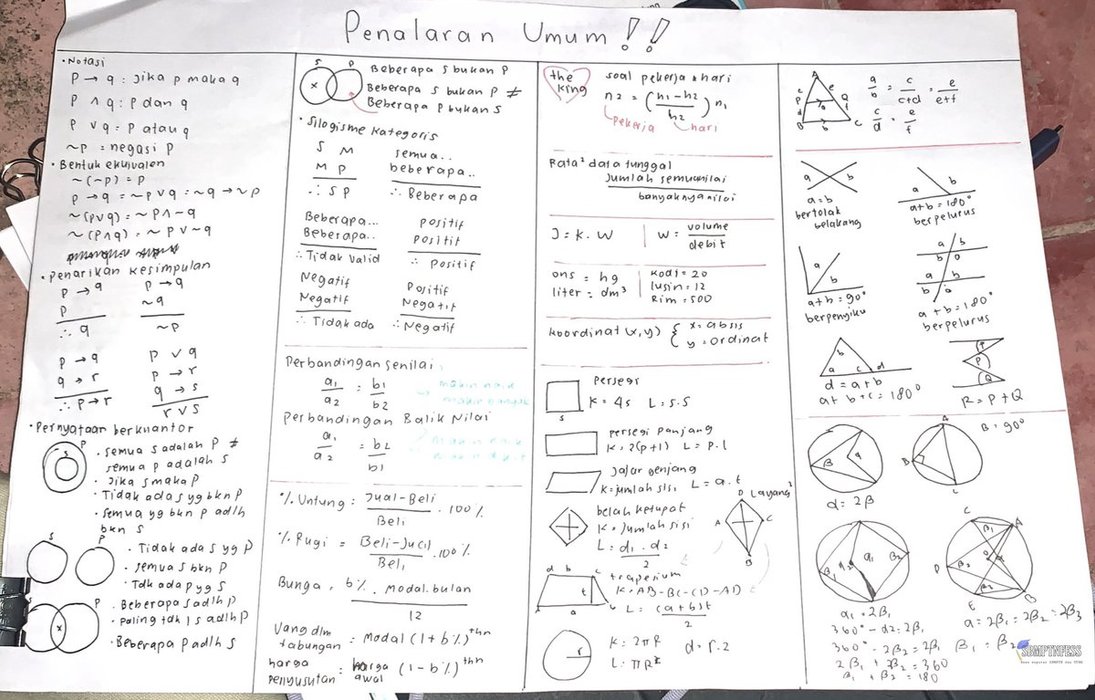 Penalaran Umum !!
• Notasi
P → q : Jika p maka q
P ∧ q : p dan q
P ∨ q = p atau q
~p = negasi p
• Bentuk ekuivalen
~(~p) = p
P → q = ~p ∨ q = ~q → ~p
~(p∨q) = ~p ∧ ~q
~(p∧q) = ~p ∨ ~q
• Penarikan kesimpulan
P → q
P
∴ q
P → q
~q
~p
P → q
q → r
∴ p → r
p ∨ q
p → r
q → s
r ∨ s
• Pernyataan berkuantor
P
S
• semua s adalah P ≠
semua p adalah s
• Jika s maka p
• Tidak ada s yg bkn p
• semua yg bkn p adlh
bkn s
S
P
• Tidak ada s yg p
• semua s bkn p
• Tdk ada p yg s
P
x
• Beberapa s adlh p
• paling tdk 1 s adlh p
• Beberapa p adlh s
S
P
x
Beberapa s bukan p
Beberapa s bukan p ≠
Beberapa p bukan s
• Silogisme kategoris
S M
M P
∴ S P
semua..
beberapa..
∴ Beberapa
Beberapa...
Beberapa..
∴ Tidak valid
positif
positif
∴ positif
Negatif
Negatif
∴ Tidak ada
Positif
Negatif
∴ Negatif
Perbandingan senilai
a1/a2 = b1/b2
makin naik
Perbandingan Balik Nilai
a1/a2 = b2/b1
% Untung = Jual-Beli/Beli . 100 %
% Rugi = Beli-Jual/Beli . 100 %
Bunga = b% . modal . bulan/12
Uang dlm tabungan = Modal (1+b%)^thn
harga penyusutan = harga awal (1-b%)^thn
the king
soal pekerja & hari
n2 = (h1-h2/h2) n1
pekerja
hari
Rata² data tunggal
Jumlah semua nilai
banyaknya nilai
J = K . W
W = volume/debit
ons = hg
liter = dm³
Kodi = 20
lusin = 12
Rim = 500
Koordinat (x,y) { x = absis
y = ordinat
s
persegi
K = 4s L = s.s
persegi panjang
K = 2(p+l) L = p.l
Jajar genjang
K = jumlah sisi L = a.t
belah ketupat
K = jumlah sisi
L = d1 . d2/2
Layang²
D
A
C
B
trapesium
K = AB-BC-CD-AD
L = (a+b)t/2
r
K = 2πR
L = πR²
d = r.2
a/b = c/c+d = e/e+f
c/d = e/f
a b
a = b
bertolak belakang
a b
a+b = 180°
berpelurus
a
b
a+b = 90°
berpenyiku
a b
b a
a b
b a
a+b = 180°
berpelurus
b
a c d
d = a+b
a+b+c = 180°
P
P
Q
R = P + Q
β
α
α = 2β
A
B
C
B = 90°
α1 = 2β1
360° - α2 = 2β1
360° - 2β2 = 2β1
2β1 + 2β2 = 360
β1 + β2 = 180
C
A
D
E
B
β1
β2
β3
α
α = 2β1 = 2β2 = 2β3
SBMPTNFESS